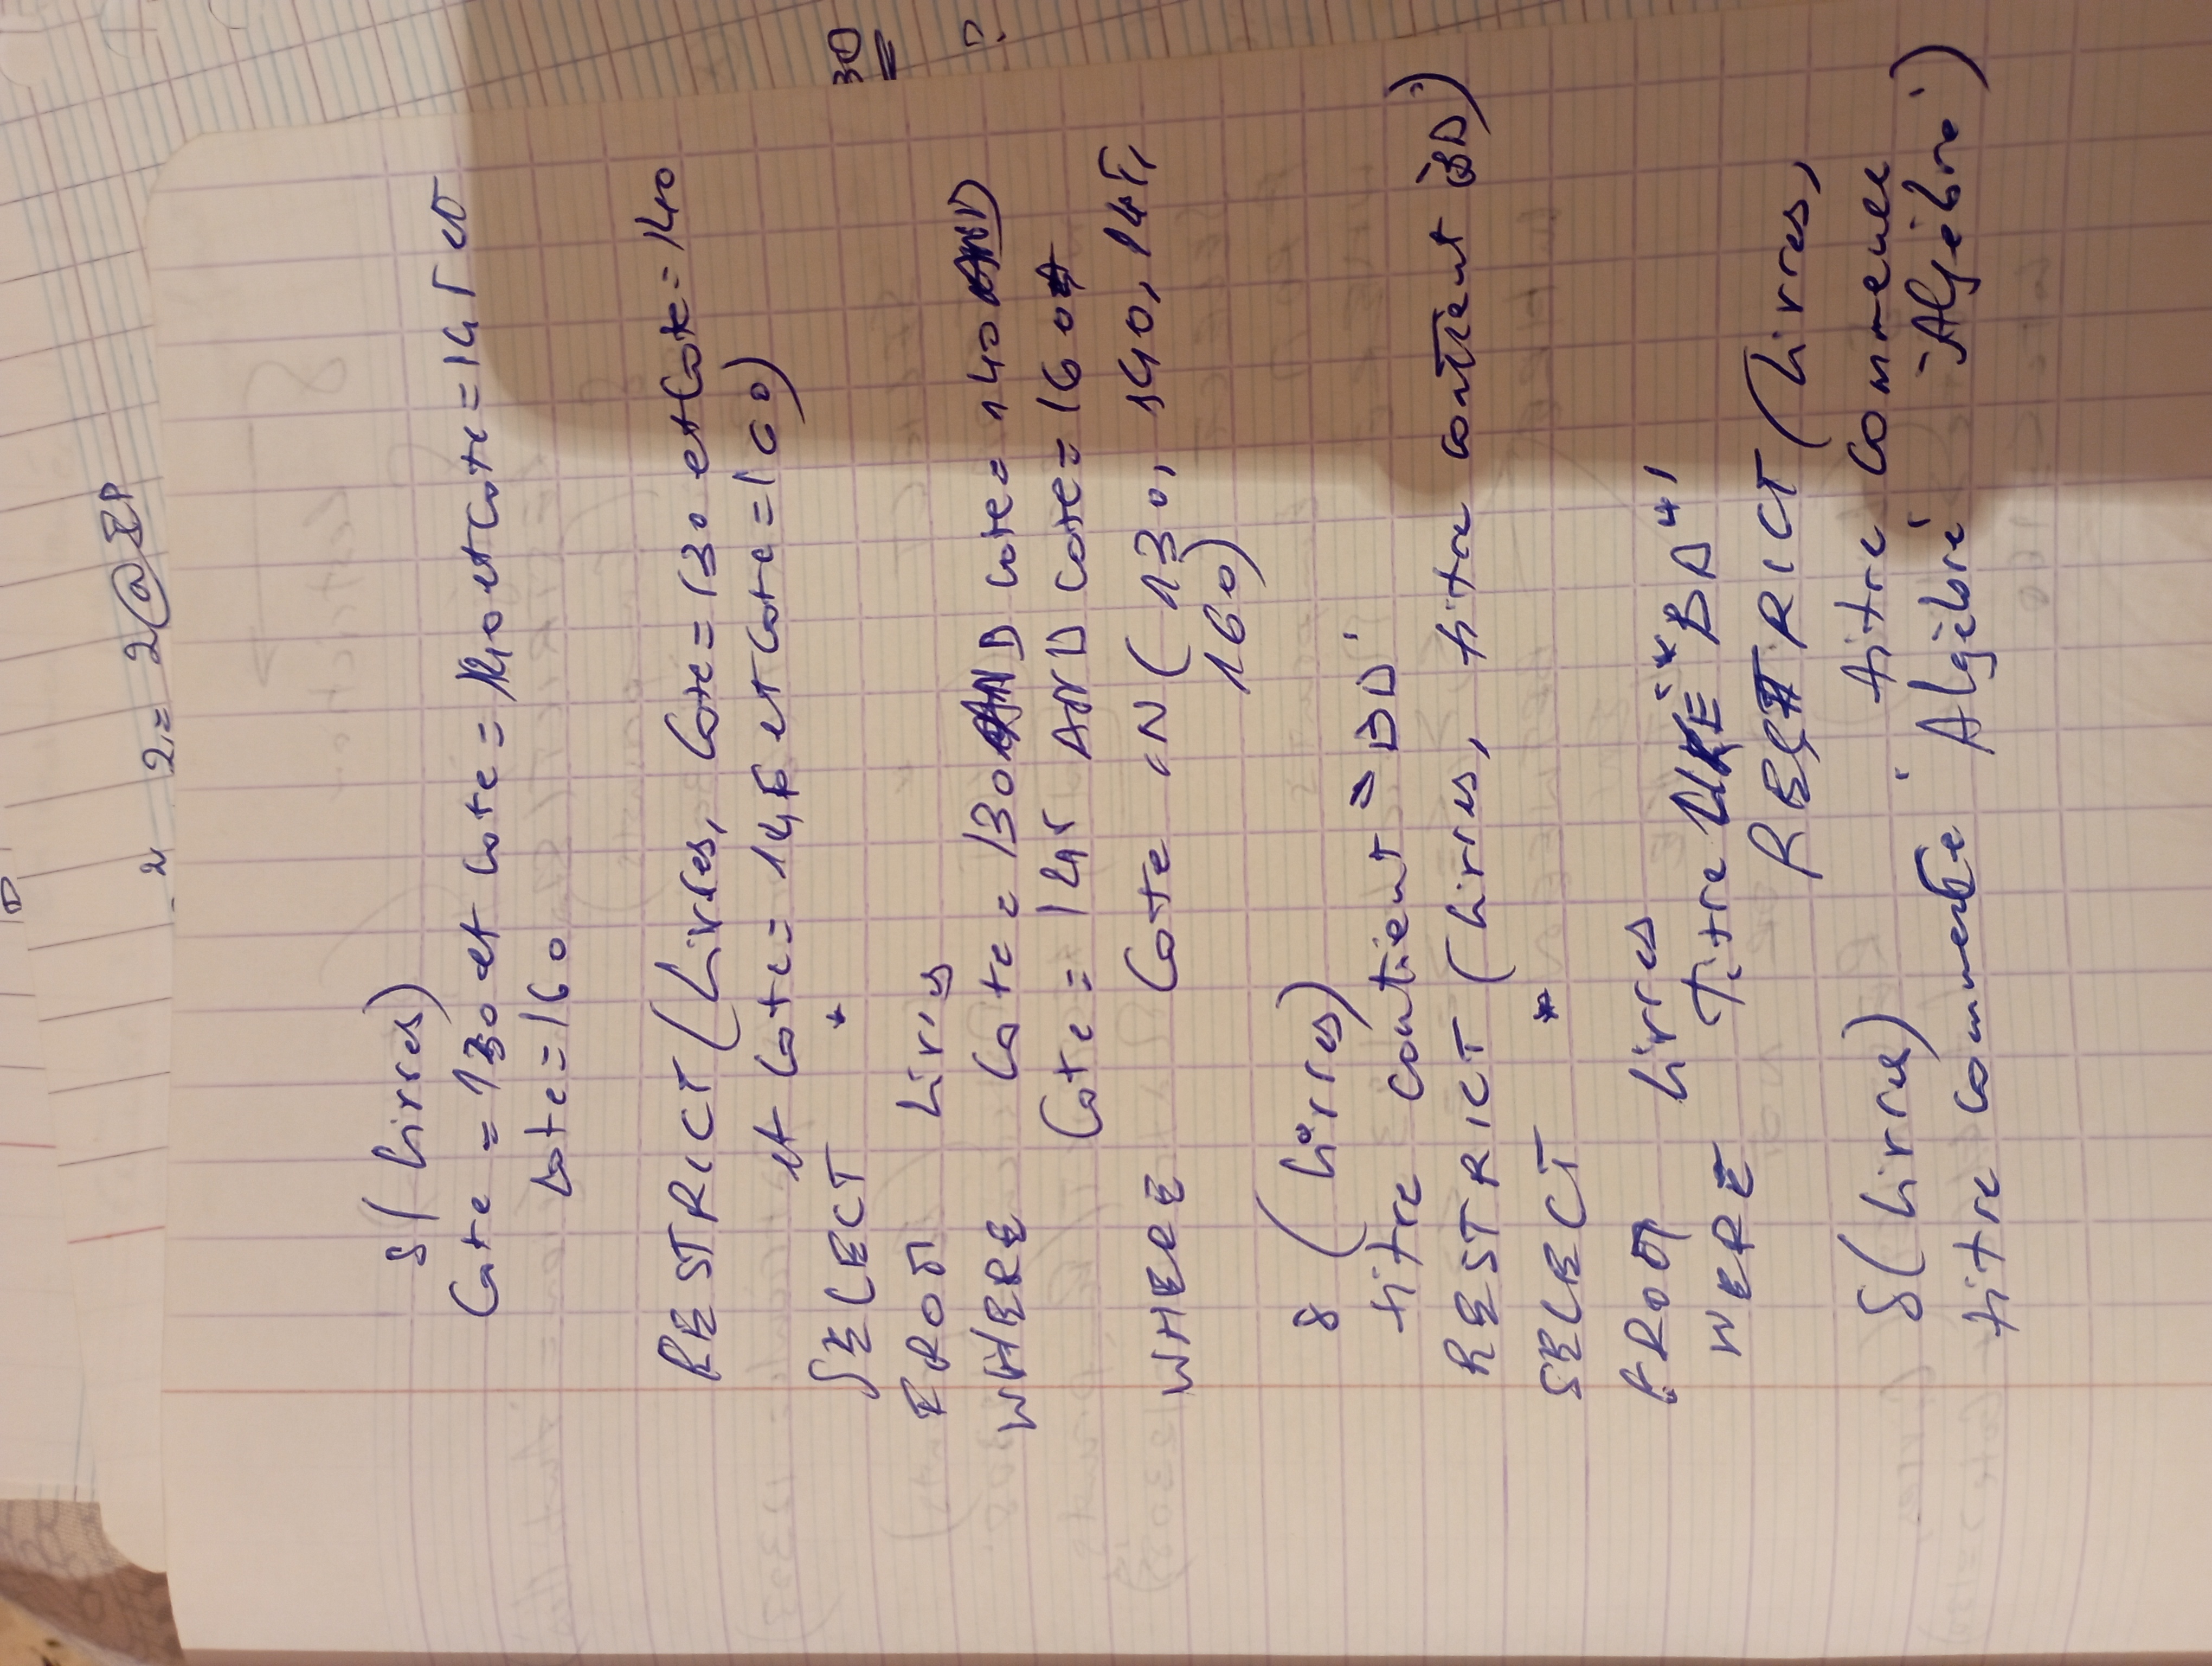 δ(Livres)
Cote = 130 et Cote = 140 et Cote = 145 et
Cote = 160
RESTRICT (Livres, Cote = 130 et Cote = 140
et Cote = 145 et Cote = 160)
SELECT *
FROM Livres
WHERE Cote = 130 AND Cote = 140 AND
Cote = 145 AND Cote = 160
WHERE Cote IN (130, 140, 145,
160)
δ (Livres)
titre contient "BD"
RESTRICT (Livres, titre contient 'BD')
SELECT *
FROM Livres
WERE Titre "*BD*"
RESTRICT (Livres,
titre commence
δ(Livre)
titre commence 'Algèbre' 'Algèbre')